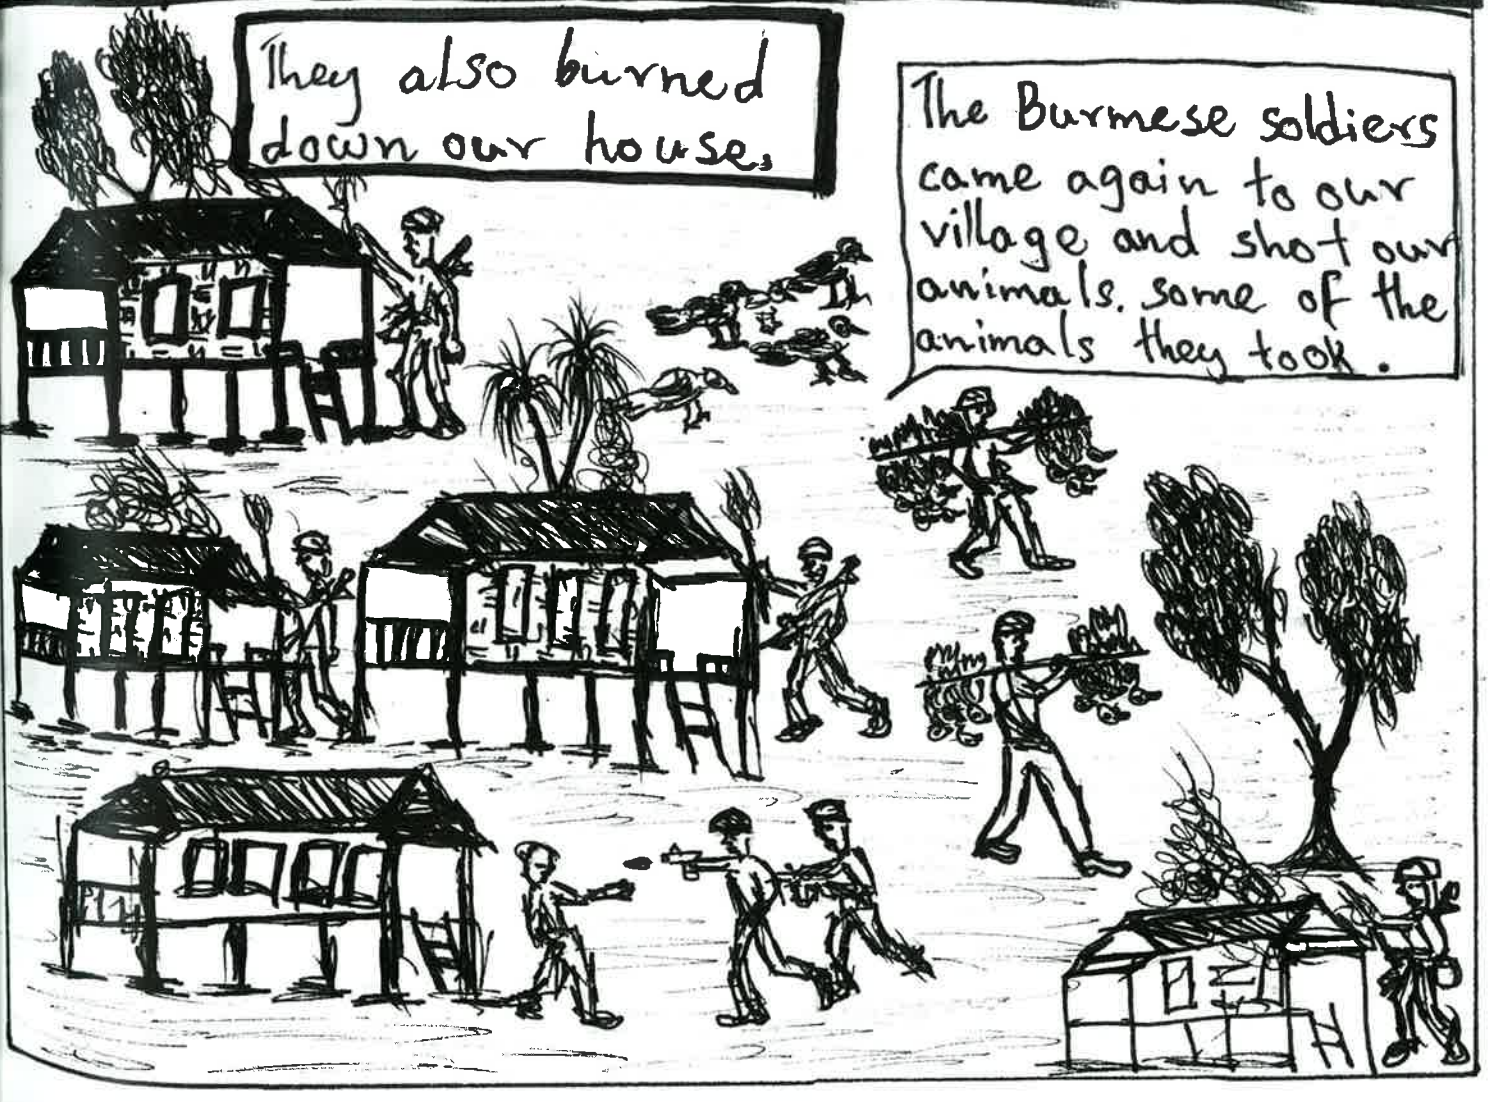 They also burned
down our house.
The Burmese soldiers
came again to our
village and shot our
animals. some of the
animals they took.